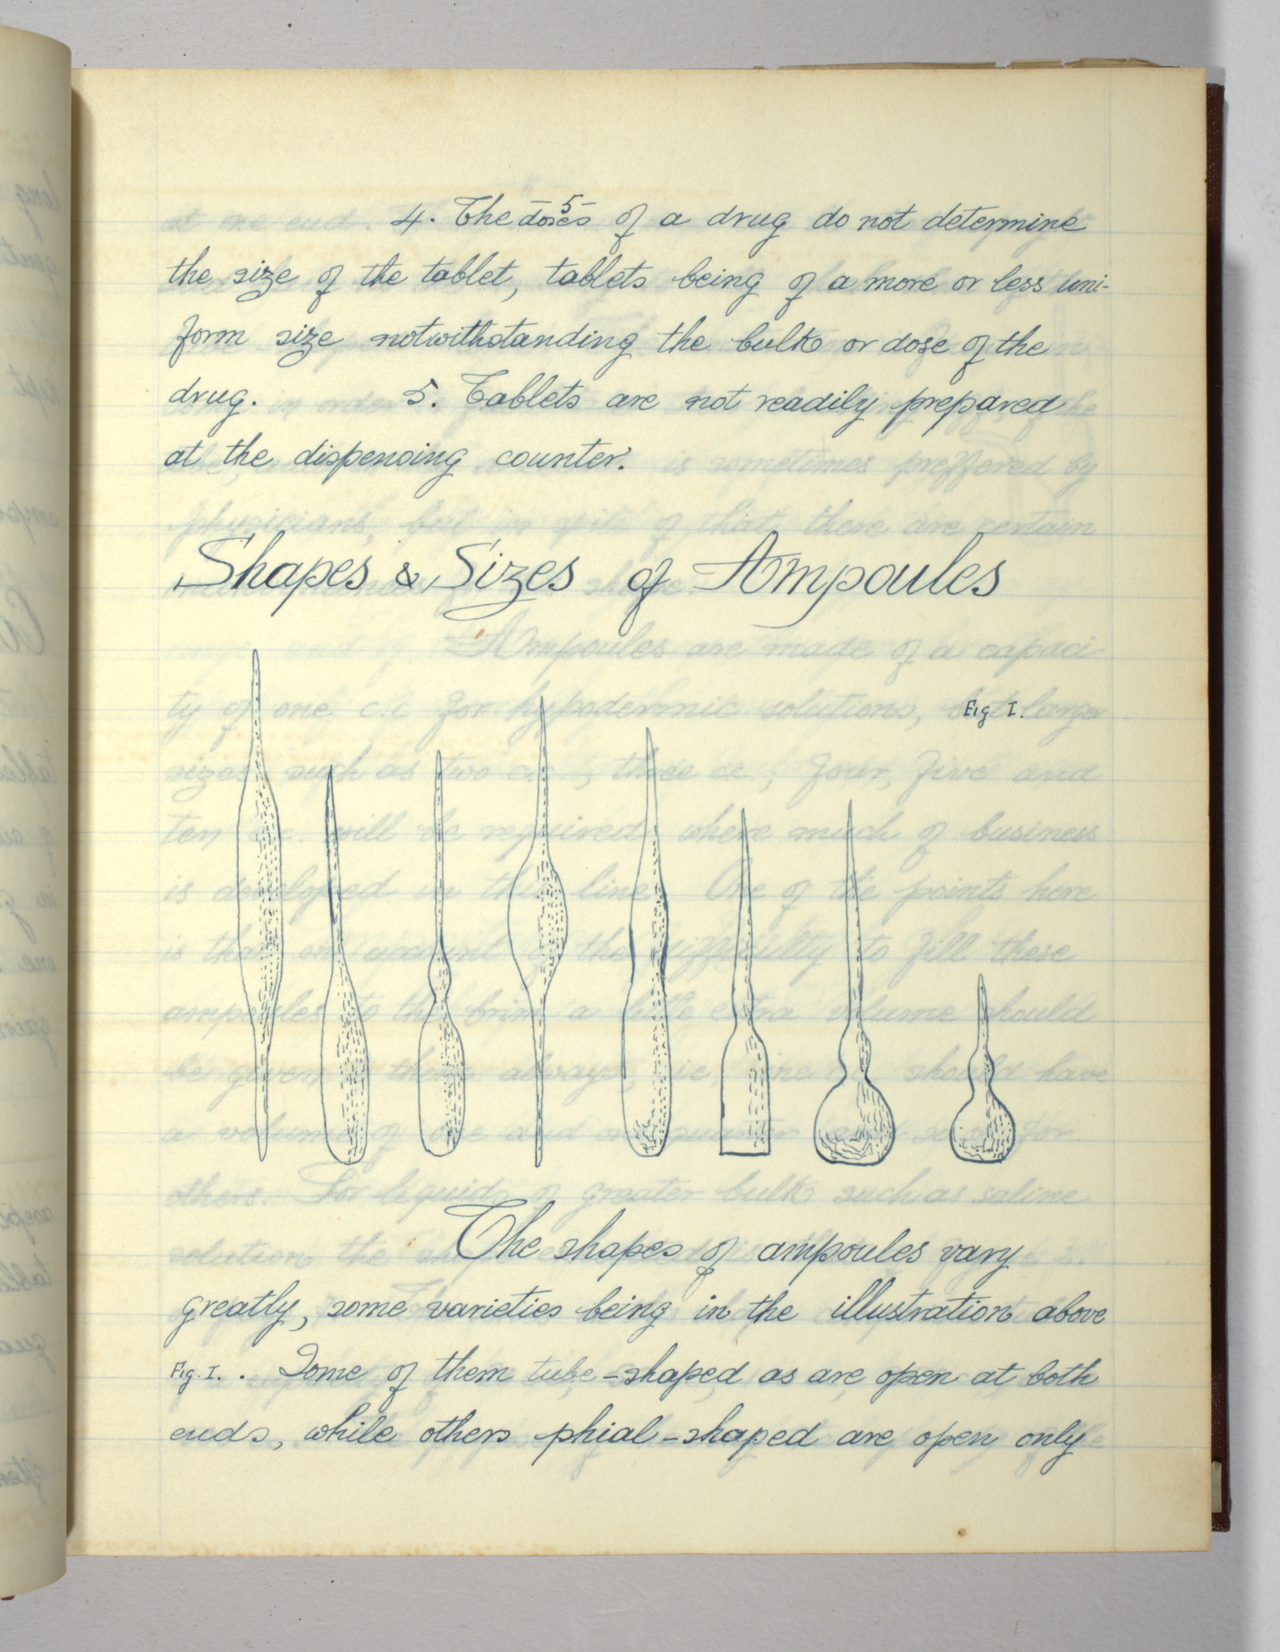 -5-
4. The doses of a drug do not determine
the size of the tablet, tablets being of a more or less uni-
form size notwithstanding the bulk or dose of the
drug. 5. Tablets are not readily prepared
at the dispensing counter.
Shapes & Sizes of Ampoules
Fig I.
The shapes of ampoules vary
greatly, some varieties being in the illustration above
Fig. I. . Some of them tube-shaped as are open at both
ends, while others phial-shaped are open only